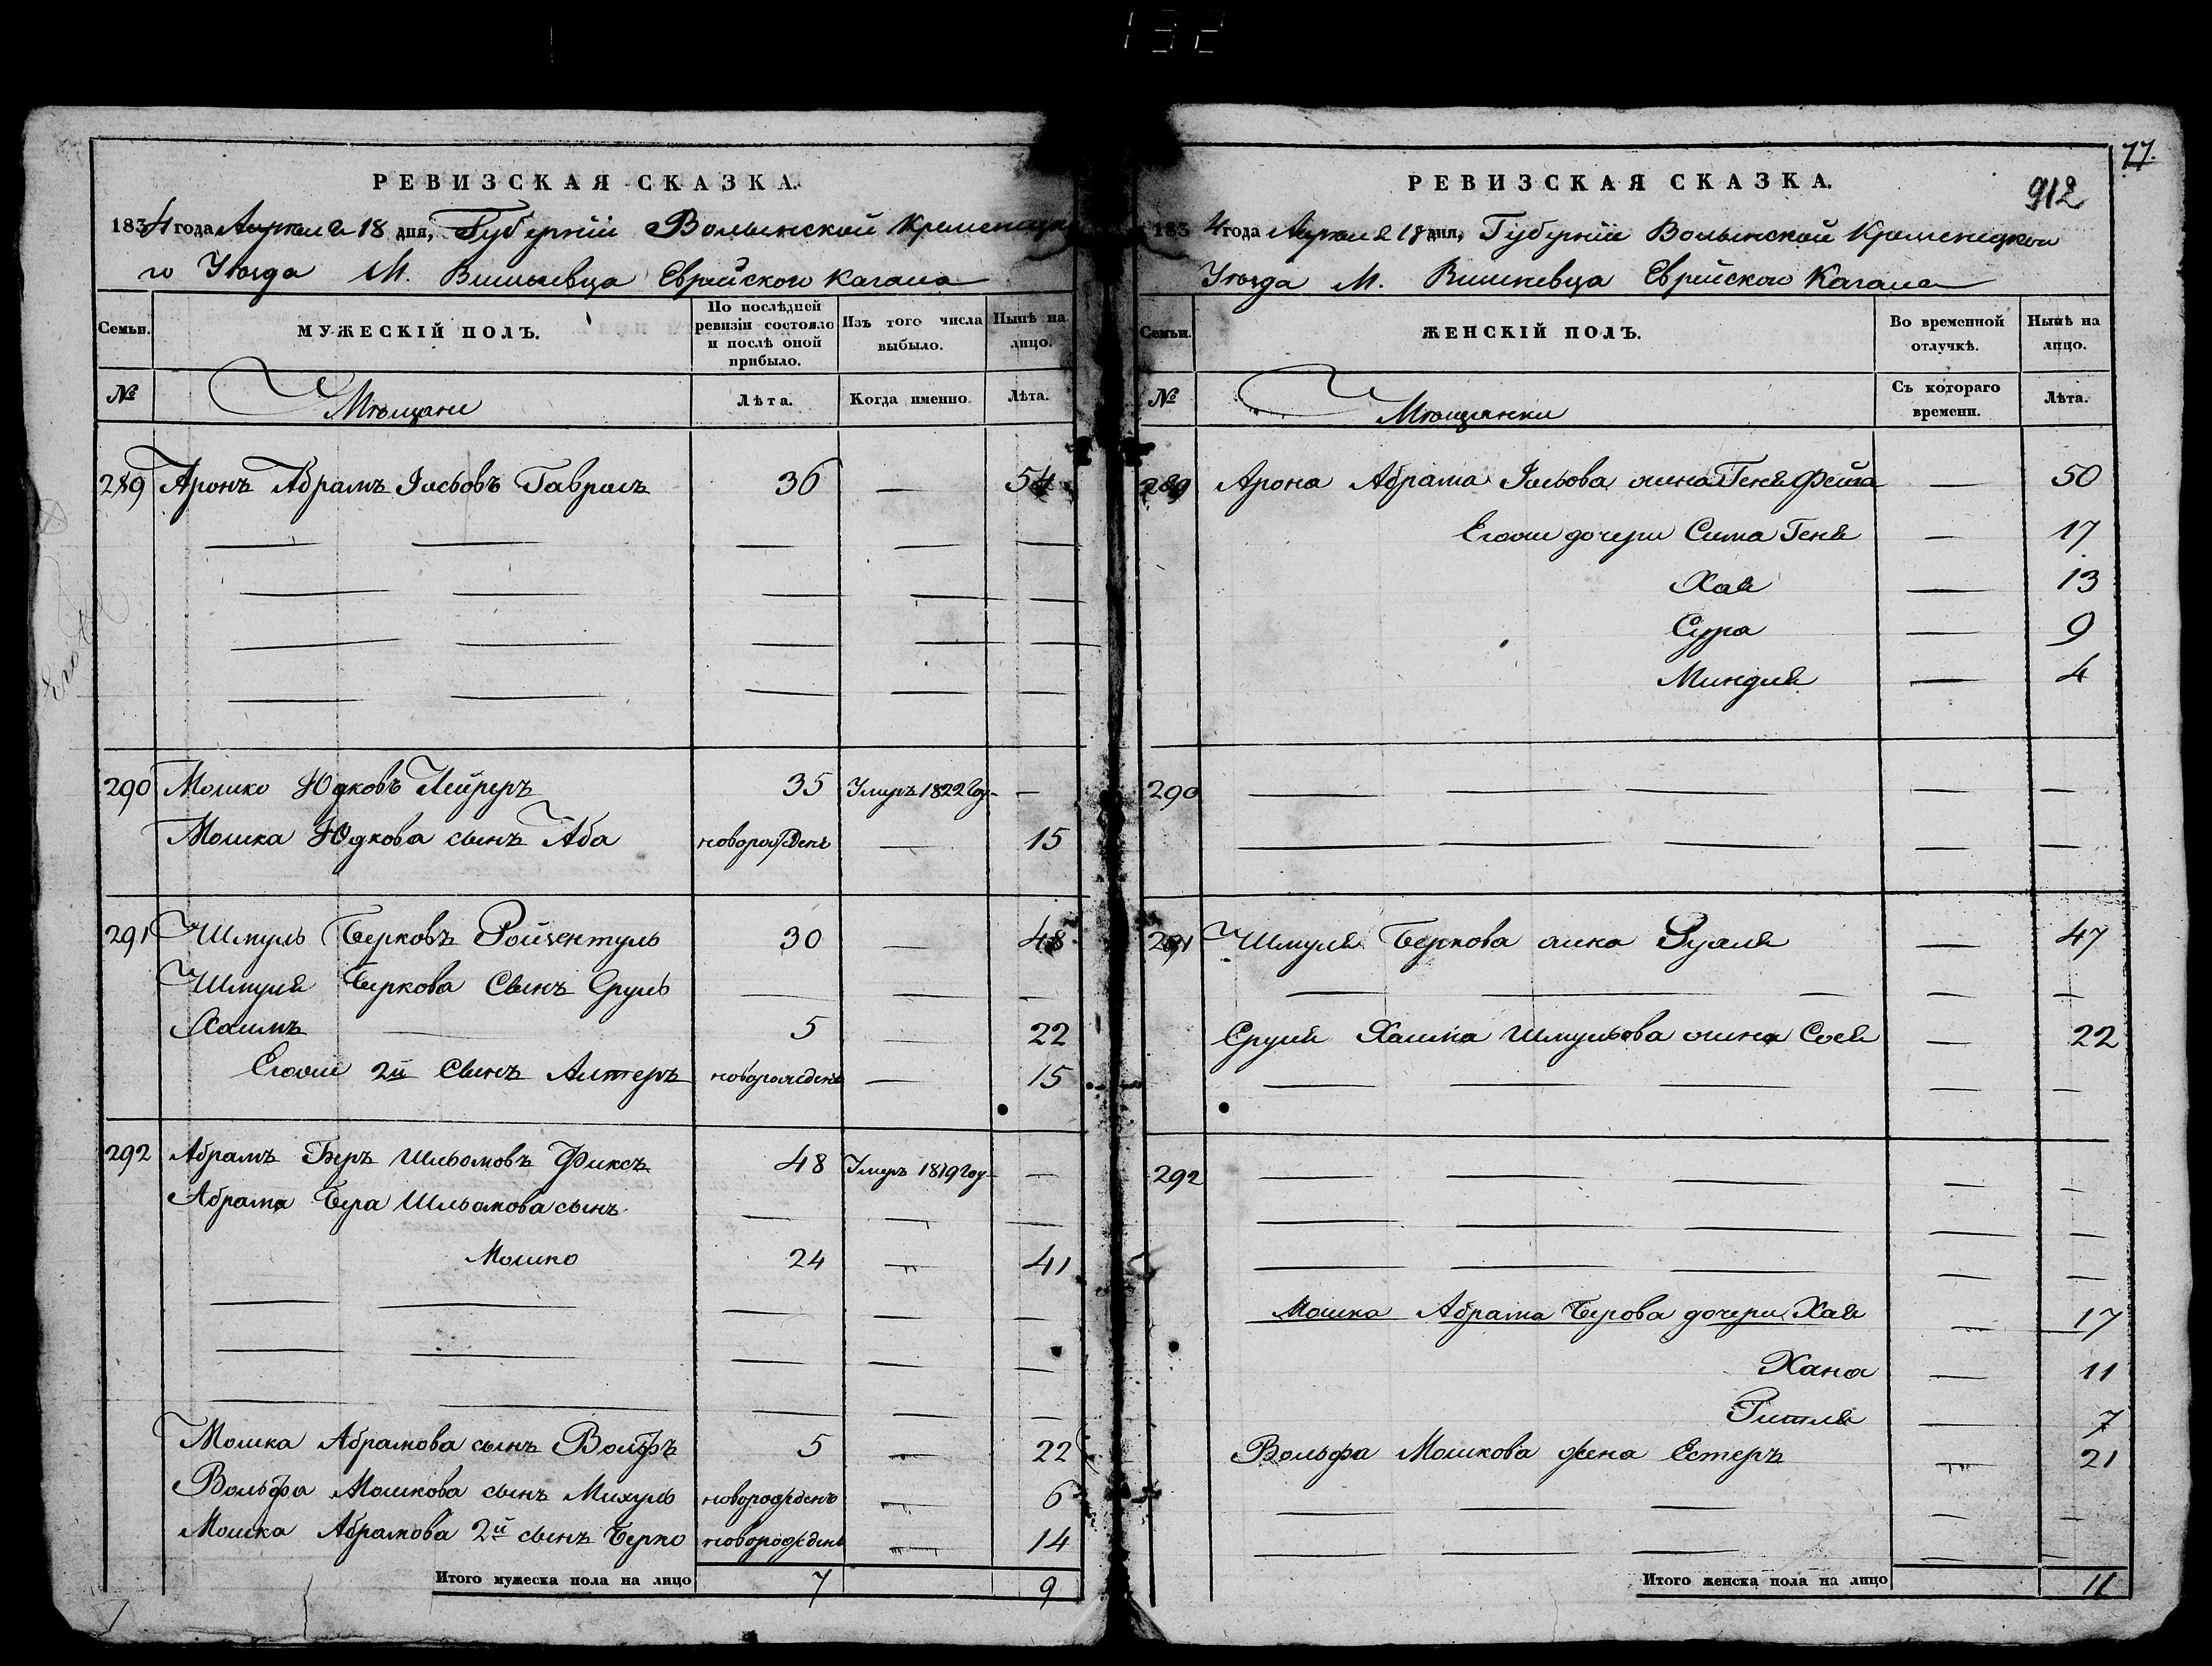 132
РЕВИЗСКАЯ СКАЗКА.
1834 года Апреля 18 дня, Губерніи Волынской Кременецка
го Уѣзда М. Вишневца Еврейского Кагала
Семьи.
МУЖЕСКІЙ ПОЛЪ.
По послѣдней ревизіи состояло и послѣ оной прибыло.
Изъ того числа выбыло.
Нынѣ на лицо.
№
Мѣщане
Лѣта.
Когда именно
Лѣта.
289 Аронъ Абрамъ Іосьовъ Гаврись 36 — 54
290 Мошко Юдковъ Лейреръ 35 Умеръ 1822 Год —
Мошка Юдкова сынъ Аба новорожденъ — 15
291 Шмуль Берковъ Ройзентуль 30 — 48
Шмуля Беркова Сынъ Сруль — — —
Хаимъ — 5 — 22
Егоже 2й Сынъ Алтеръ новорожденъ — 15
292 Абрамъ Беръ Шльомовъ Фиксъ 48 Умеръ 1819 Год —
Абрама Бера Шльомова сынъ — — —
Мошко 24 — 41
Мошка Абрамова сынъ Вольфъ 5 — 22
Вольфа Мошкова сынъ Михуль новорожденъ — 6
Мошка Абрамова 2й сынъ Берко новорожденъ — 14
Итого мужеска пола на лицо 7 9
77.
912
РЕВИЗСКАЯ СКАЗКА.
1834 года Апреля 18 дня, Губерніи Волынской Кременецкого
Уѣзда М. Вишневца Еврейского Кагала
Семьи.
ЖЕНСКІЙ ПОЛЪ.
Во временной отлучкѣ.
Нынѣ на лицо.
№
Мѣщанки
Съ котораго времени.
Лѣта.
289 Арона Абрама Іосьова жена Геня Фейга — 50
Егоже дочери Сима Геня — 17
Хая — 13
Сура — 9
Миндля — 4
290 — — — — —
291 Шмуля Беркова жена Рухля — 47
Сруля Хаима Шмульова жена Сося — 22
292 — — — — —
Мошка Абрама Берова дочери Хая — 17
Хана — 11
Гитля — 7
Вольфа Мошкова жена Естеръ — 21
Итого женска пола на лицо 11